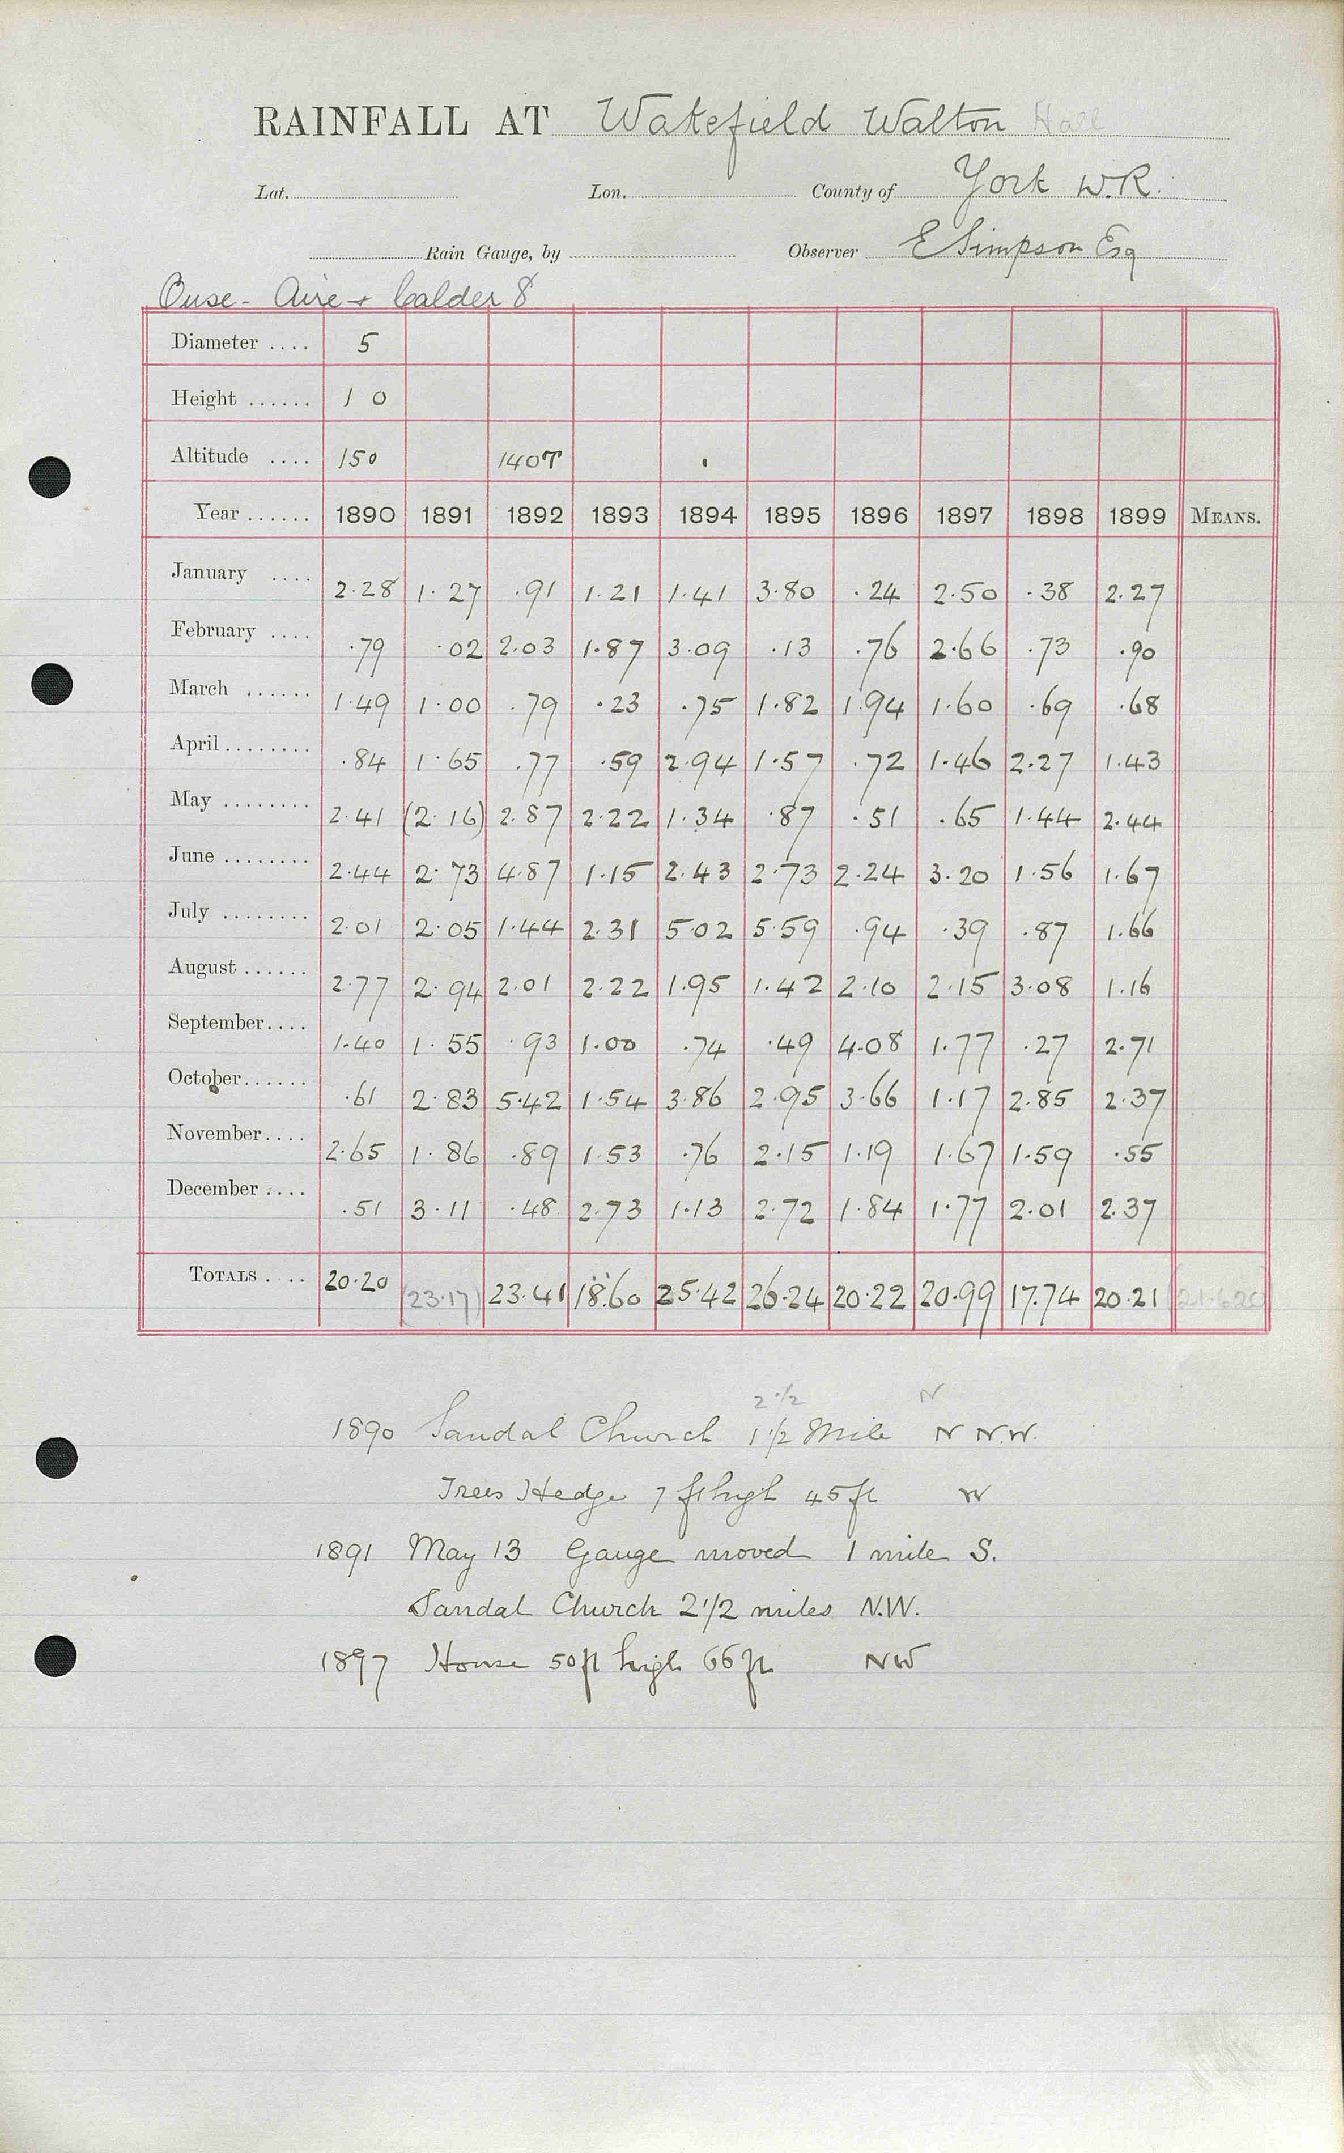 RAINFALL AT Wakefield Walton Hall
Lat. Lon. County of York W.R.
Rain Gauge, by Observer E Simpson Esq
Ouse - Aire + Calder 8
Diameter .... 5
Height ...... 1 0
Altitude .... 150 140T
Year ...... 1890 1891 1892 1893 1894 1895 1896 1897 1898 1899 MEANS.
January .... 2.28 1.27 .91 1.21 1.41 3.80 .24 2.50 .38 2.27
February .... .79 .02 2.03 1.87 3.09 .13 .76 2.66 .73 .90
March ...... 1.49 1.00 .79 .23 .75 1.82 1.94 1.60 .69 .68
April ........ .84 1.65 .77 .59 2.94 1.57 .72 1.46 2.27 1.43
May ........ 2.41 (2.16) 2.87 2.22 1.34 .87 .51 .65 1.44 2.44
June ........ 2.44 2.73 4.87 1.15 2.43 2.73 2.24 3.20 1.56 1.67
July ........ 2.01 2.05 1.44 2.31 5.02 5.59 .94 .39 .87 1.66
August ...... 2.77 2.94 2.01 2.22 1.95 1.42 2.10 2.15 3.08 1.16
September.... 1.40 1.55 .93 1.00 .74 .49 4.08 1.77 .27 2.71
October...... .61 2.83 5.42 1.54 3.86 2.95 3.66 1.17 2.85 2.37
November.... 2.65 1.86 .89 1.53 .76 2.15 1.19 1.67 1.59 .55
December .... .51 3.11 .48 2.73 1.13 2.72 1.84 1.77 2.01 2.37
TOTALS .... 20.20 (23.17) 23.41 18.60 25.42 26.24 20.22 20.99 17.74 20.21 (21.620)
2 1/2 N
1890 Sandal Church 1 1/2 Mile N N.W.
Trees Hedge 7 ft high 45 ft W
1891 May 13 Gauge moved 1 mile S.
Sandal Church 2 1/2 miles N.W.
1897 House 50 ft high 66 ft NW